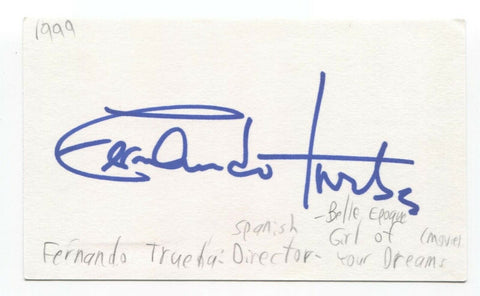 1999
Fernando Trueba
- Belle Epoque
Spanish Girl of (movie)
Fernando Trueba: Director - Your Dreams